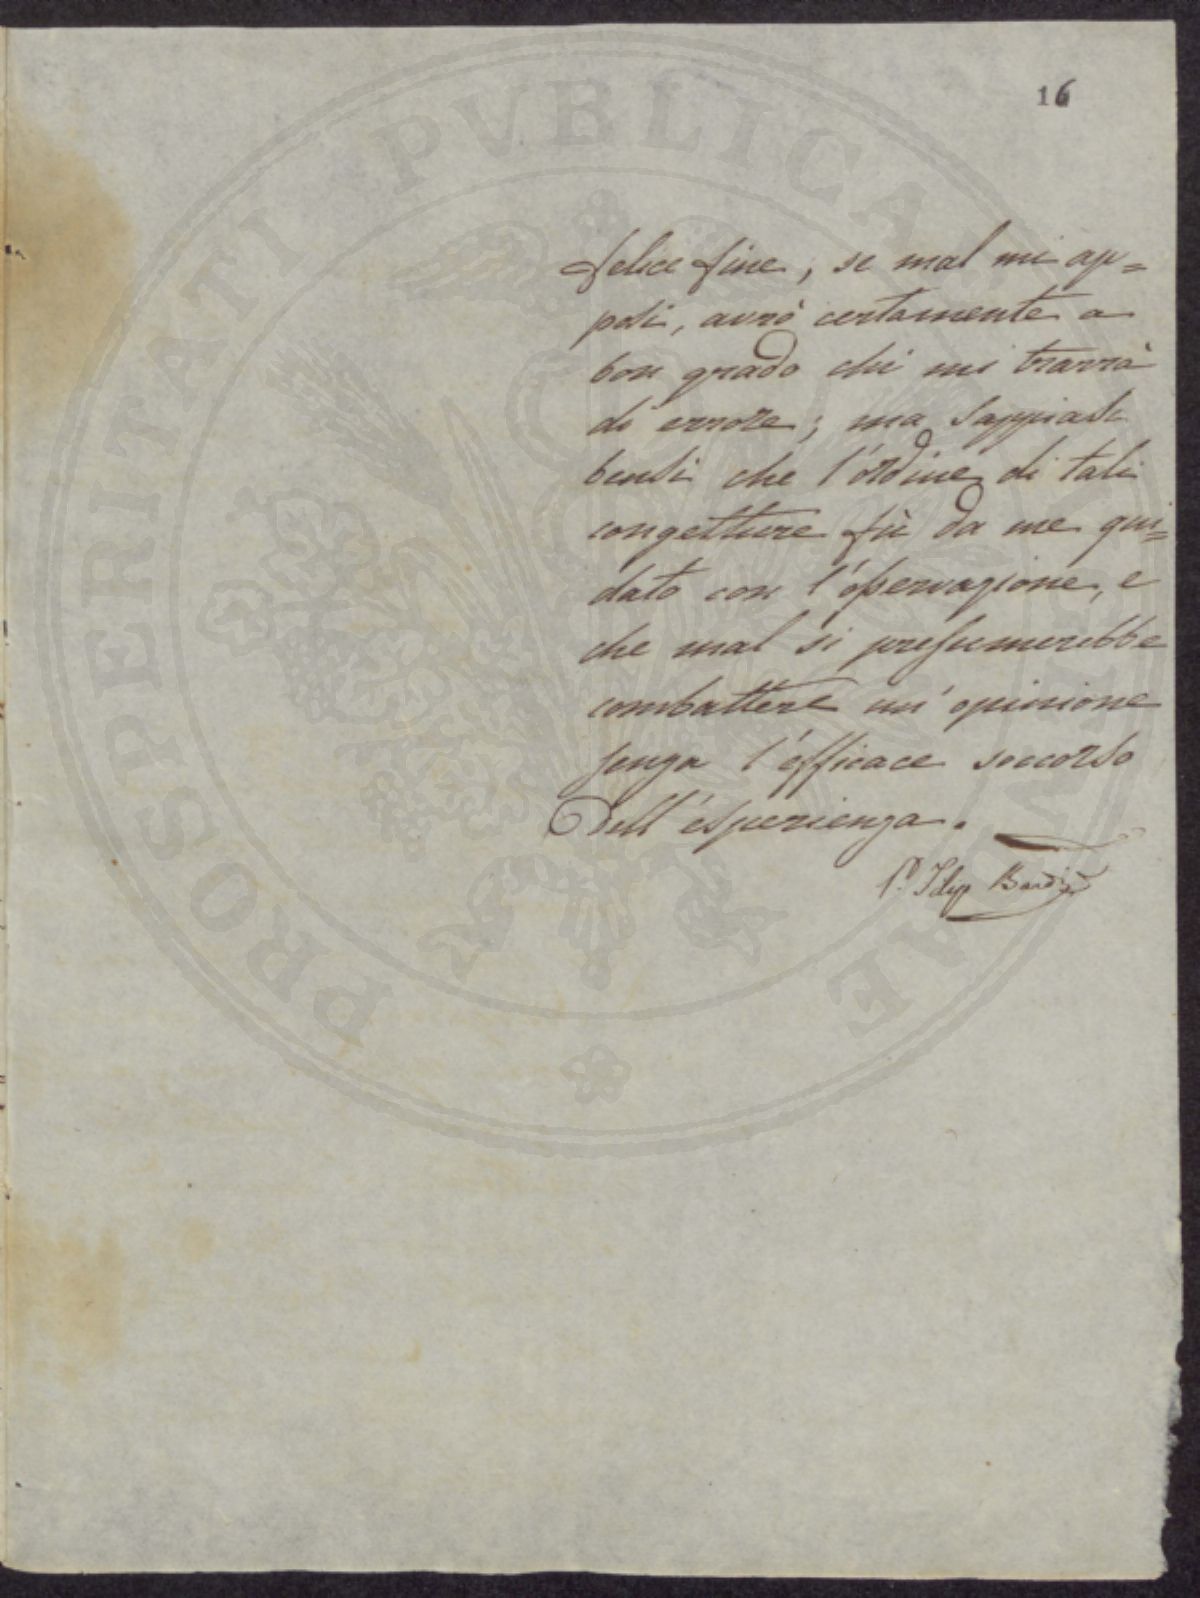 16
felice fine, se mal mi ap=
posi, avrò certamente a
bon grado chi mi trarrà
di errore; ma sappiasi
bensì che l'ordine di tali
congetture fù da me gui=
dato con l'osservazione, e
che mal si presumerebbe
combattere un' opinione
senza l'efficace soccorso
dell'esperienza.
Bardi
PROSPERITATI PVBLICAE